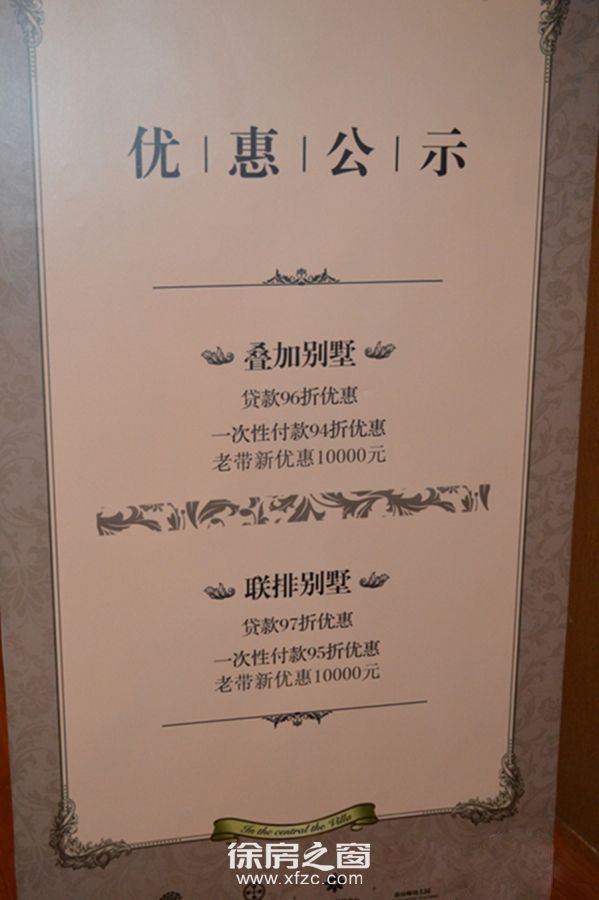 优|惠|公|示
叠加别墅
贷款96折优惠
一次性付款94折优惠
老带新优惠10000元
联排别墅
贷款97折优惠
一次性付款95折优惠
老带新优惠10000元
In the central the Villa
徐房之窗
www.xfzc.com